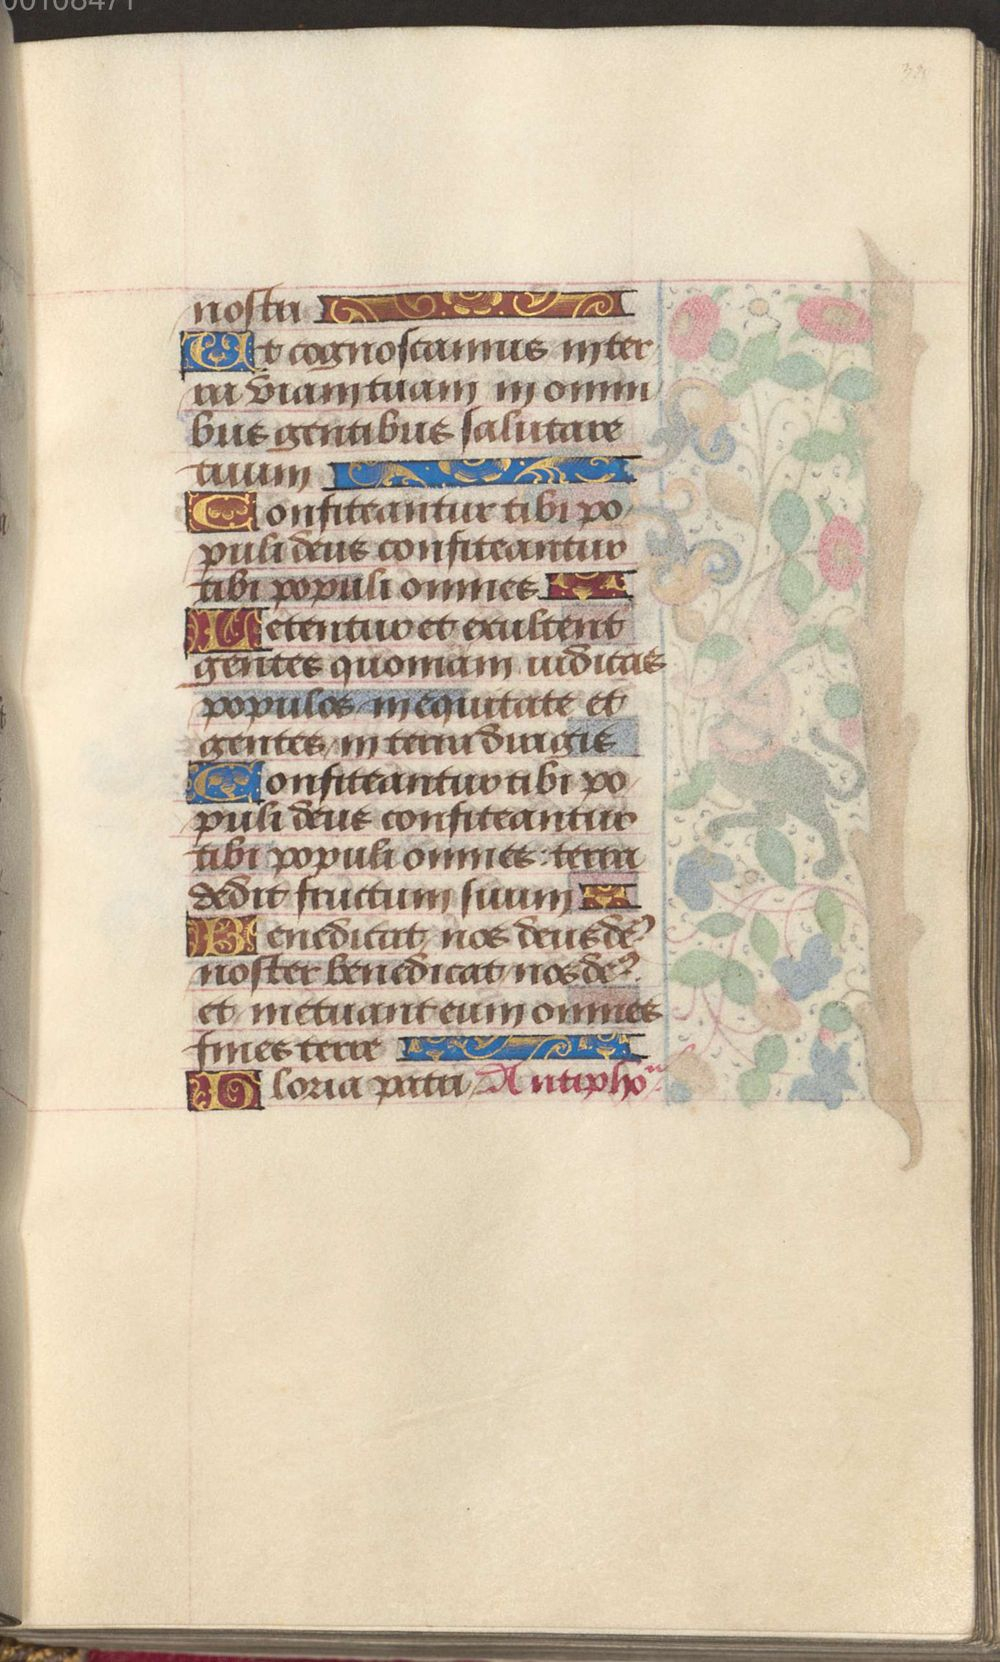 nostri
Ut cognoscamus in ter
ra viam tuam in omni
bus gentibus salutare
tuum
Confiteantur tibi po
puli deus confiteantur
tibi populi omnes
Letentur et exultent
gentes quoniam iudicas
populos in equitate et
gentes in terra dirigis
Confiteantur tibi po
puli deus confiteantur
tibi populi omnes terra
dedit fructum suum
Benedicat nos deus de9
noster benedicat nos de9
et metuant eum omnes
fines terre
Gloria patri Antipho